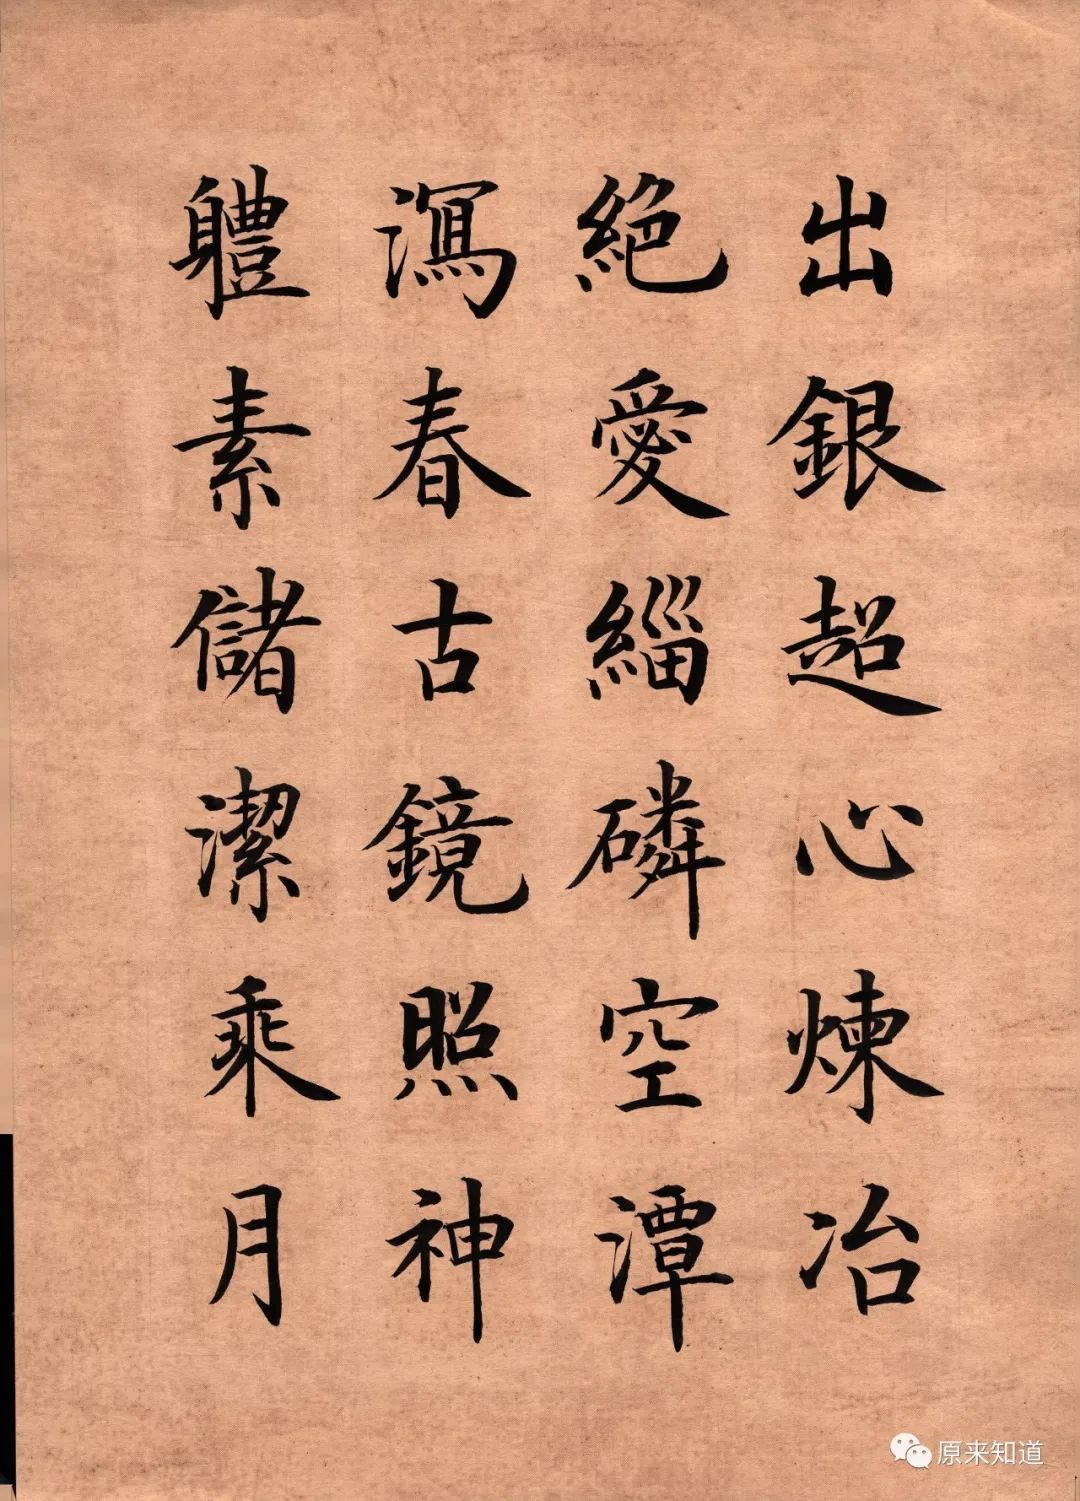 出銀超心煉冶
絕愛緇磷空潭
瀉春古鏡照神
軆素儲潔乘月
原来知道